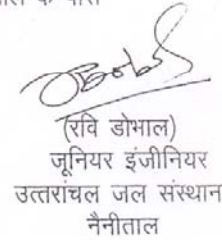 (रवि डोभाल)
जूनियर इंजीनियर
उत्तरांचल जल संस्थान
नैनीताल